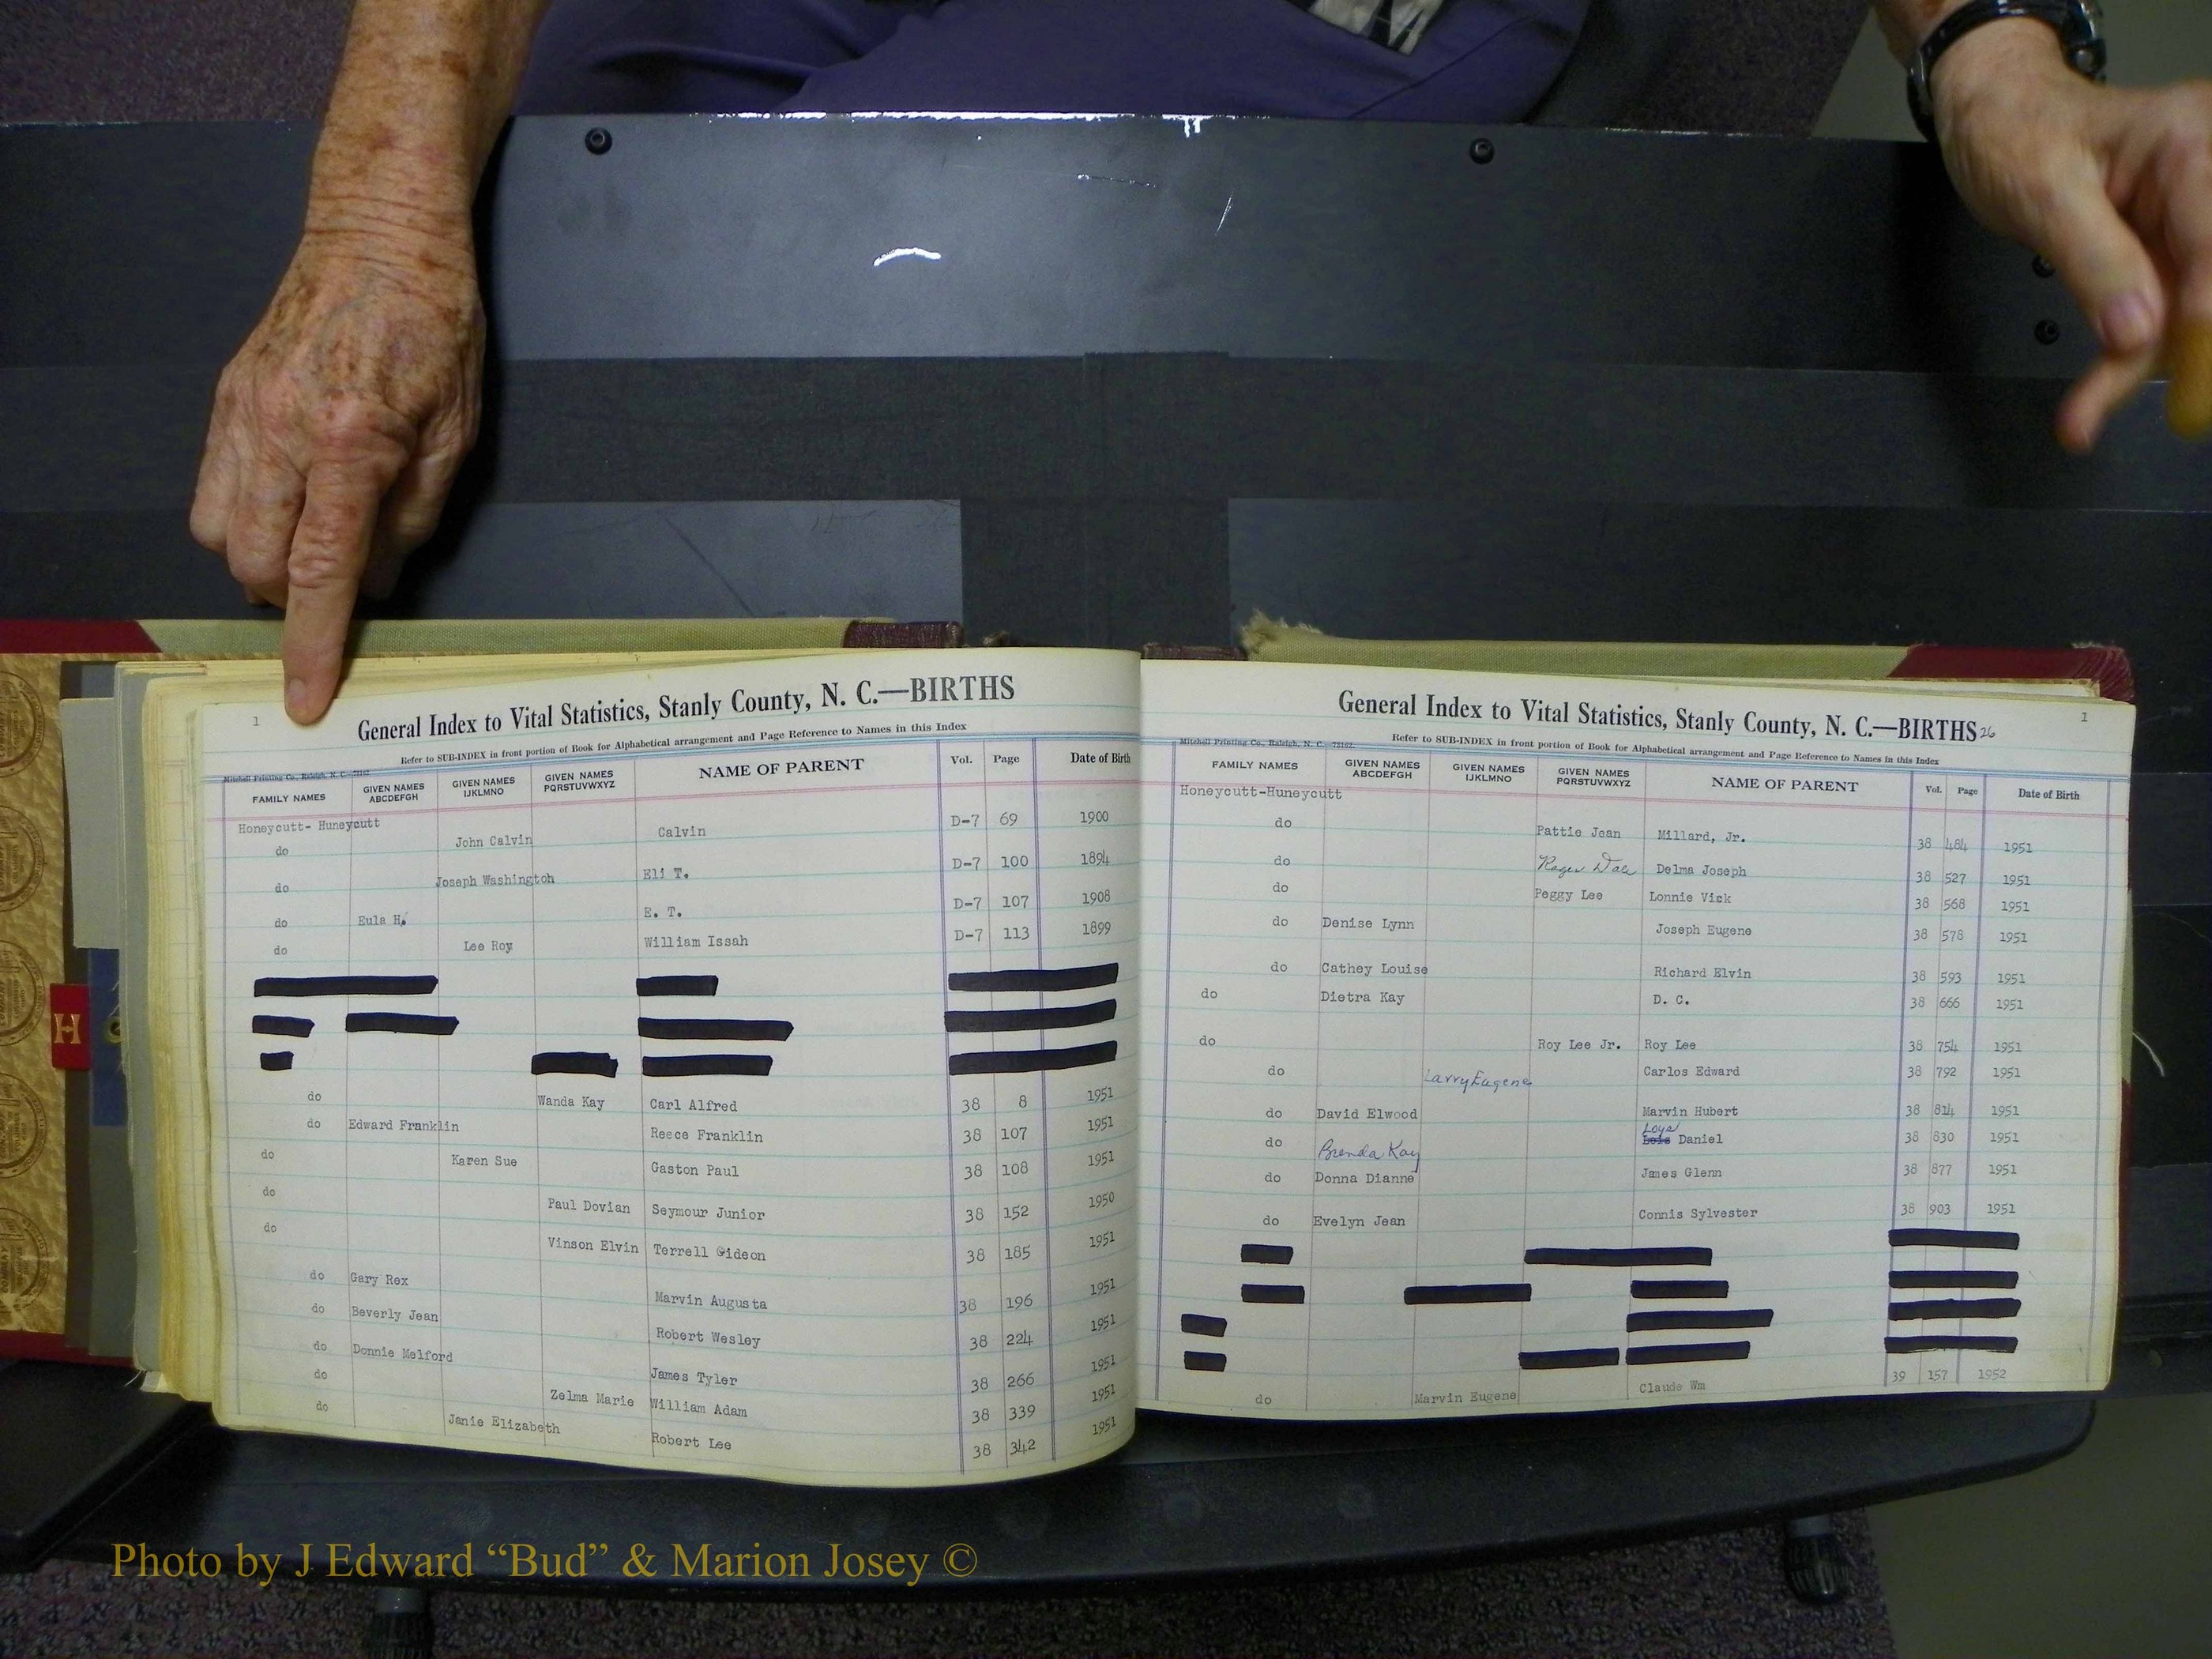 1
General Index to Vital Statistics, Stanly County, N. C.—BIRTHS
Refer to SUB-INDEX in front portion of Book for Alphabetical arrangement and Page Reference to Names in this Index
Mitchell Printing Co., Raleigh, N. C.
FAMILY NAMES GIVEN NAMES ABCDEFGH GIVEN NAMES IJKLMNO GIVEN NAMES PQRSTUVWXYZ NAME OF PARENT Vol. Page Date of Birth
Honeycutt- Huneycutt
do John Calvin Calvin D-7 69 1900
do Joseph Washington Eli T. D-7 100 1894
do Eula H. E. T. D-7 107 1908
do Lee Roy William Issah D-7 113 1899
do Wanda Kay Carl Alfred 38 8 1951
do Edward Franklin Reece Franklin 38 107 1951
do Karen Sue Gaston Paul 38 108 1951
do Paul Dovian Seymour Junior 38 152 1950
do Vinson Elvin Terrell Gideon 38 185 1951
do Gary Rex Marvin Augusta 38 196 1951
do Beverly Jean Robert Wesley 38 224 1951
do Donnie Melford James Tyler 38 266 1951
do Zelma Marie William Adam 38 339 1951
do Janie Elizabeth Robert Lee 38 342 1951
General Index to Vital Statistics, Stanly County, N. C.—BIRTHS 26
1
Refer to SUB-INDEX in front portion of Book for Alphabetical arrangement and Page Reference to Names in this Index
Mitchell Printing Co., Raleigh, N. C. 75162
FAMILY NAMES GIVEN NAMES ABCDEFGH GIVEN NAMES IJKLMNO GIVEN NAMES PQRSTUVWXYZ NAME OF PARENT Vol. Page Date of Birth
Honeycutt-Huneycutt
do Pattie Jean Millard, Jr. 38 484 1951
do Roger Dale Delma Joseph 38 527 1951
do Peggy Lee Lonnie Vick 38 568 1951
do Denise Lynn Joseph Eugene 38 578 1951
do Cathey Louise Richard Elvin 38 593 1951
do Dietra Kay D. C. 38 666 1951
do Roy Lee Jr. Roy Lee 38 754 1951
do Larry Eugene Carlos Edward 38 792 1951
do David Elwood Marvin Hubert 38 814 1951
do Brenda Kay Loys Daniel 38 830 1951
do Donna Dianne James Glenn 38 877 1951
do Evelyn Jean Connis Sylvester 38 903 1951
do Marvin Eugene Claude Wm 39 157 1952
H
Photo by J Edward “Bud” & Marion Josey ©